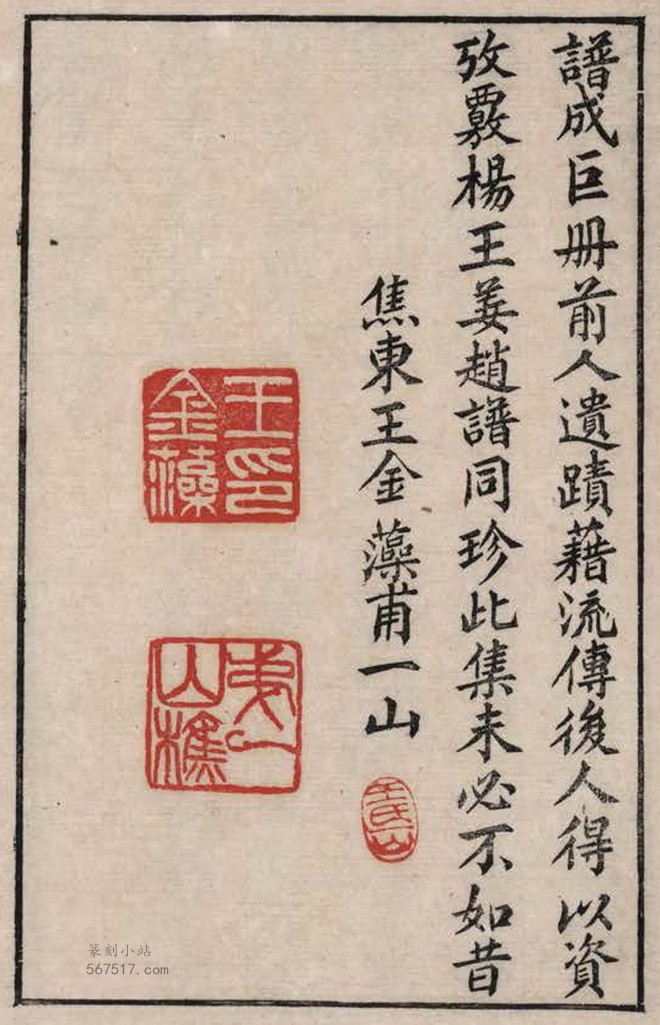 譜成巨册前人遺蹟藉流傳後人得以資
攷覈楊王姜趙譜同珍此集未必不如昔
焦東王金藻甫一山
王印
金藻
山樵
篆刻小站
567517.com